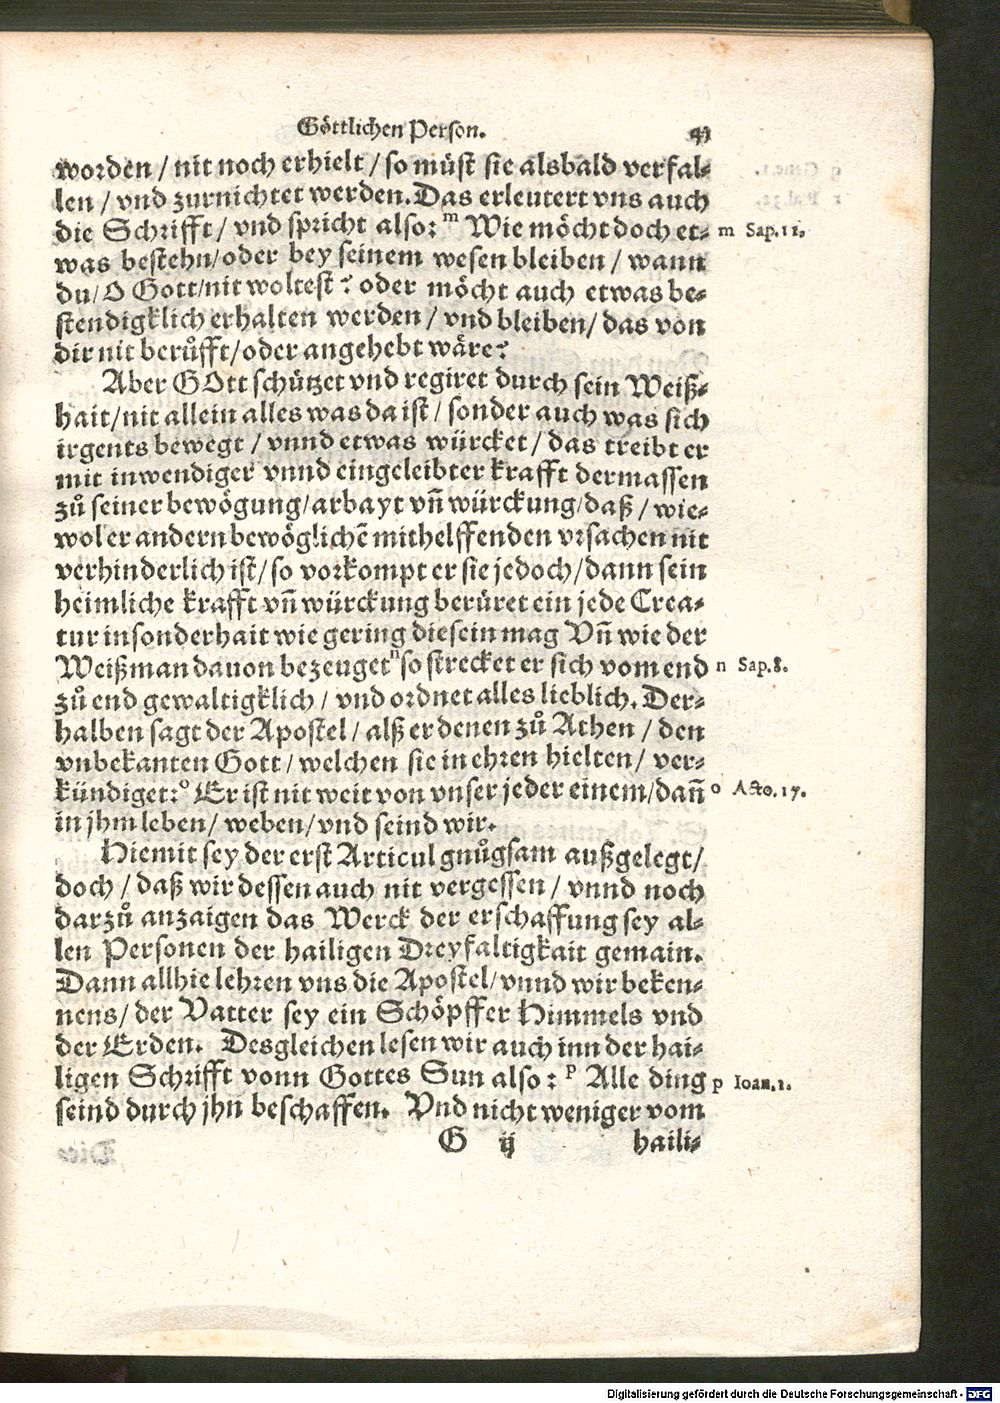 Göttlichen Person. 41
worden / nit noch erhielt / so müst sie alsbald verfal⸗
len / vnd zurnichtet werden. Das erleutert vns auch
die Schrifft / vnd spricht also: ᵐ Wie möcht doch et⸗ m Sap. 11.
was bestehn / oder bey seinem wesen bleiben / wann
du / O Gott / nit woltest? oder möcht auch etwas be⸗
stendigklich erhalten werden / vnd bleiben / das von
dir nit berůfft / oder angehebt wäre?
Aber GOtt schützet vnd regiret durch sein Weiß⸗
hait / nit allein alles was da ist / sonder auch was sich
irgents bewegt / vnnd etwas würcket / das treibt er
mit inwendiger vnnd eingeleibter krafft dermassen
zů seiner bewögung / arbayt vñ würckung / daß / wie⸗
wol er andern bewöglichē mithelffenden vrsachen nit
verhinderlich ist / so vorkompt er sie jedoch / dann sein
heimliche krafft vñ würckung berüret ein jede Crea⸗
tur insonderhait wie gering die sein mag Vñ wie der
Weißman dauon bezeuget ⁿ so strecket er sich vom end n Sap. 8.
zů end gewaltigklich / vnd ordnet alles lieblich. Der⸗
halben sagt der Apostel / alß er denen zů Athen / den
vnbekanten Gott / welchen sie in ehren hielten / ver⸗
kündiget: ᵒ Er ist nit weit von vnser jeder einem / dañ o Acto. 17.
in jhm leben / weben / vnd seind wir.
Hiemit sey der erst Articul gnůgsam außgelegt /
doch / daß wir dessen auch nit vergessen / vnnd noch
darzů anzaigen das Werck der erschaffung sey al⸗
len Personen der hailigen Dreyfaltigkait gemain.
Dann allhie lehren vns die Apostel / vnnd wir beken⸗
nens / der Vatter sey ein Schöpffer Himmels vnd
der Erden. Desgleichen lesen wir auch inn der hai⸗
ligen Schrifft vonn Gottes Sun also: ᵖ Alle ding p Ioan. 1.
seind durch jhn beschaffen. Vnd nicht weniger vom
G ij haili⸗
Digitalisierung gefördert durch die Deutsche Forschungsgemeinschaft - DFG